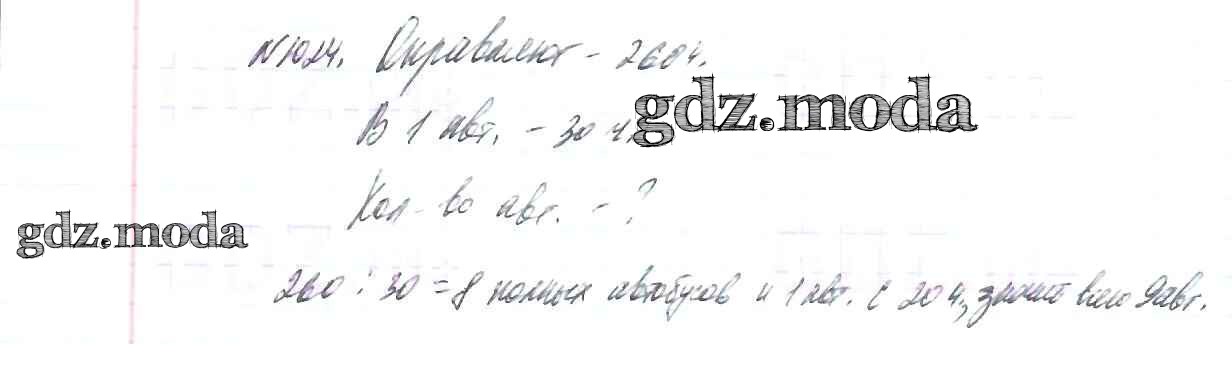 №1024. Отправляют - 260 ч.
В 1 авт. - 30 ч.
gdz.moda
Кол-во авт. - ?
gdz.moda
260 : 30 = 8 полных автобусов и 1 авт. с 20 ч., значит всего 9 авт.